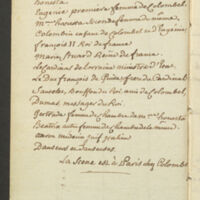 honesta
Eugenie première femme de Colombel.
Mme honesta Mere de femme de
Colombin enfant de Colombel et d'Eugenie
françois II Roi de france
Marie Stuard Reine de france
Le Cardinal de Lorraine ministre d'Etat
Le Duc françois de Guise frere du Cardinal
Bouffon du Roi ami de Colombel
Dumas messager du Roi.
Gertrude femme de chambre de Mme honesta
Beatrix autre femme de chambre de la meme
medecin juif
Danseurs et Danseuses.
La Scene est à Paris chez Colombel